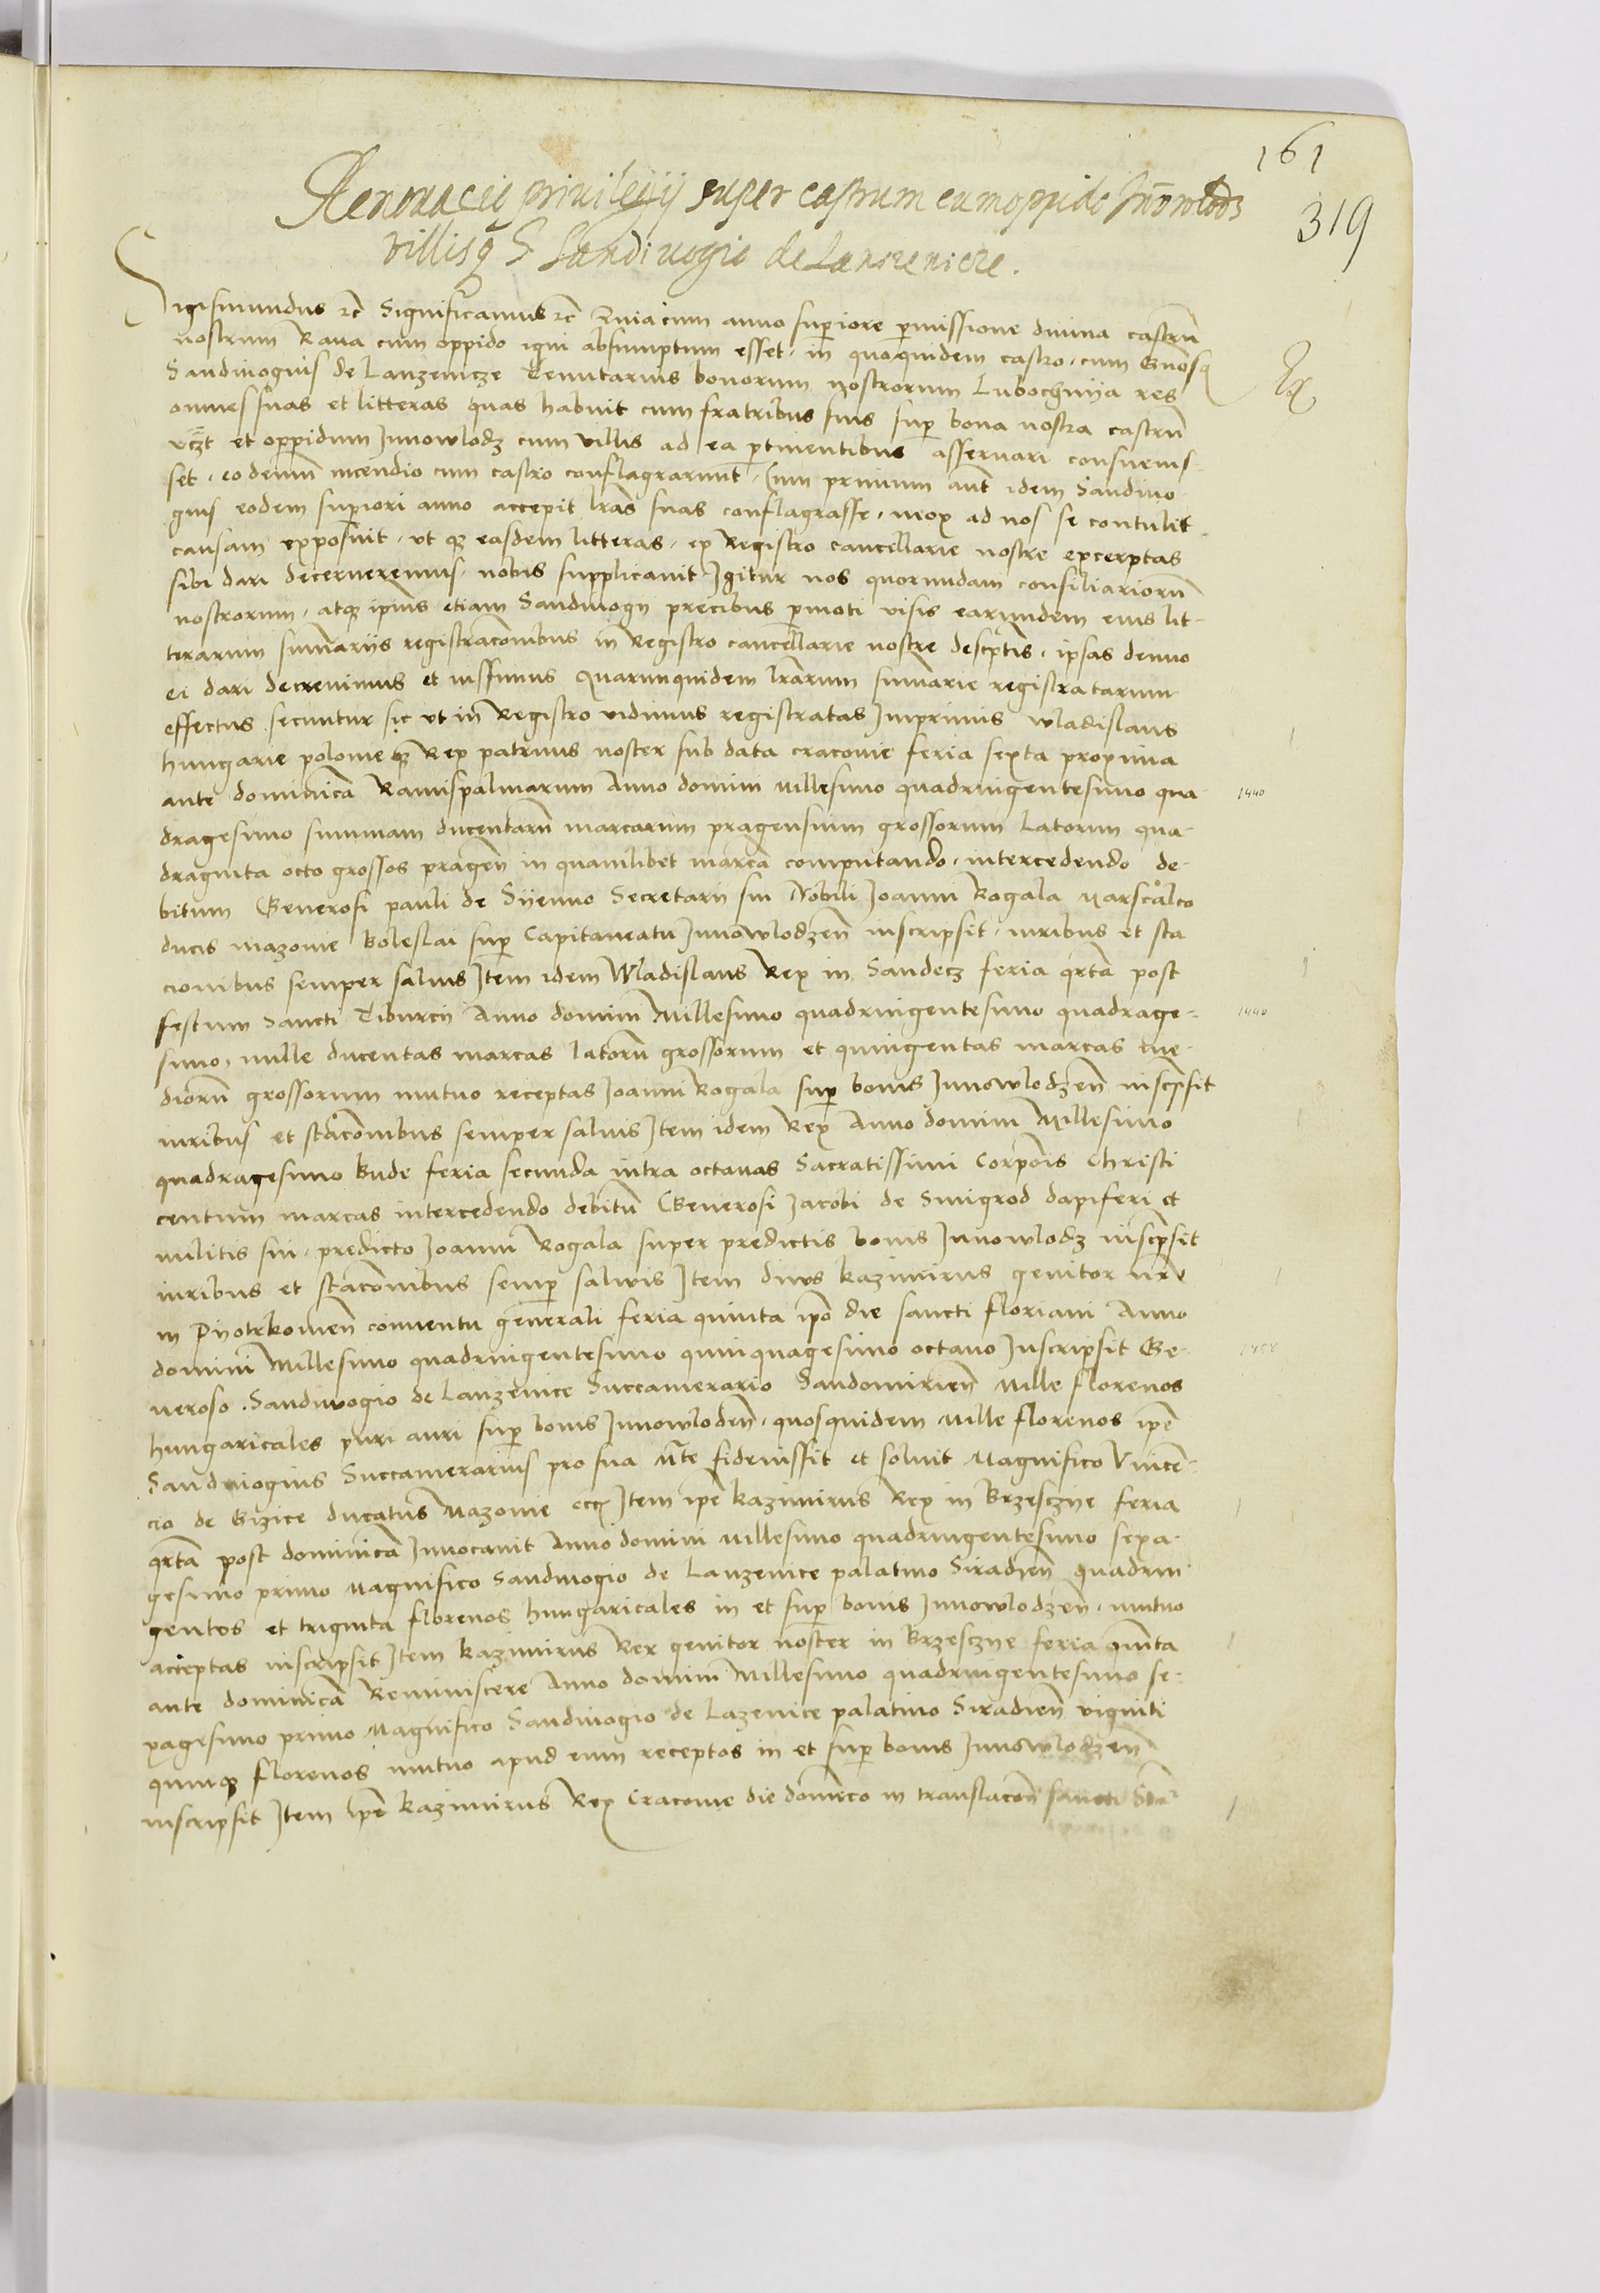 161
319
Renovacio privilegij super castrum cum oppido Innowlodz
villisq G Sandivogio de Lanczenicze.
Sigismundus rc Significamus rc Quia cum anno superiore permissione divina castrũ
nostrum Rava cum oppido igni absumptum esset, in quoquidem castro, cum Gnosq
Sandivogius de Lanzenicze Tenutarius bonorum nostrorum Lubochnija res
Ex
omnes suas et litteras quas habuit cum fratribus suis super bona nostra castrũ
vczt et oppidum Innowlodz cum villis ad ea pertinentibus asservari consuevis-
set, eodemm̃ incendio cum castro conflagrarunt, Cum primum aut̃ idem Sandivo-
gius eodem superiori anno accepit lr̃as suas conflagrasse, mox ad nos se contulit
causam exposuit, ut qz easdem litteras, ex Registro cancellarie nostre excerptas
sibi dari decerneremus, nobis supplicavit Igitur nos quorundam consiliariorũ
nostrorum, atqz ipius etiam Sandivogij precibus permoti visis earundem eius lit-
terarum sum̃arijs registracõnibus in Registro cancellarie nostre descriptis, ipsas denuo
ei dari decrevimus et iussimus Quarumquidem lr̃arum sum̃arie registratarum
effectus secuntur sic ut in Registro vidimus registratas Inprimis Wladislaus
hungarie polonie qz Rex patruus noster sub data cracovie feria sexta proxima
ante dominicã Ramispalmarum Anno domini millesimo quadringentesimo qua-
1440
dragesimo summam ducentarũ marcarum pragensium grossorum latorum qua-
draginta octo grossos pragen̄ in quamlibet marcã computando, intercedendo de-
bitum Generosi pauli de Sijenno Secretarij sui Nobili Joanni Rogala Marscalco
ducis mazovie Boleslai super Capitaneatu Innowlodzen̄ inscripsit, iuribus et sta
cionibus semper salvis Item idem Wladislaus Rex in Sandecz feria qrtã post
festum Sancti Tiburcij Anno domini Millesimo quadringentesimo quadrage-
1440
simo, mille ducentas marcas latorũ grossorum et quingentas marcas me-
diorũ grossorum mutuo receptas Joanni Rogala super bonis Innowlodzen̄ inscripsit
iuribus et stacõnibus semper salvis Item idem Rex Anno domini Millesimo
quadragesimo Bude feria secunda intra octavas Sacratissimi Corporis Christi
centum marcas intercedendo debitũ Generosi Jacobi de Smigrod dapiferi et
militis sui, predicto Joanni Rogala super predictis bonis Innowlodz inscripsit
iuribus et stacõnibus semper salvis Item divus kazimirus genitor nr̃
in Pijotrkovien̄ conventu generali feria quinta ipo die sancti floriani Anno
domini Millesimo quadringentesimo quinquagesimo octavo Inscripsit Ge-
1458
neroso Sandivogio de Lanzenice Succamerario Sandomirien̄ Mille florenos
hungaricales puri auri super bonis Innowloden̄, quosquidem mille florenos ipẽ
Sandivogius Succamerarius pro sua Mte fideiussit et solvit Magnifico Vincen-
cio de Gizice ducatus Mazovie etc Item ipe kazimirus Rex in Brzesczye feria
qrtã post dominicã Invocavit Anno domini Millesimo quadringentesimo sexa-
gesimo primo Magnifico Sandivogio de Lanzenice palatino Siradien̄ quadrin-
gentos et triginta florenos hungaricales in et super bonis Innowlodzen̄, mutuo
acceptas inscripsit Item kazimirus Rex genitor noster in Brzesczye feria quinta
ante dominicã Reminiscere Anno domini Millesimo quadringentesimo se-
xagesimo primo Magnifico Sandivogio de Lazenice palatino Siradien̄ viginti
quinqz florenos mutuo apud eum receptos in et super bonis Innowlodzen̄
inscripsit Item ipe kazimirus Rex Cracovie die dominco in translacõn̄ sancti Sta-